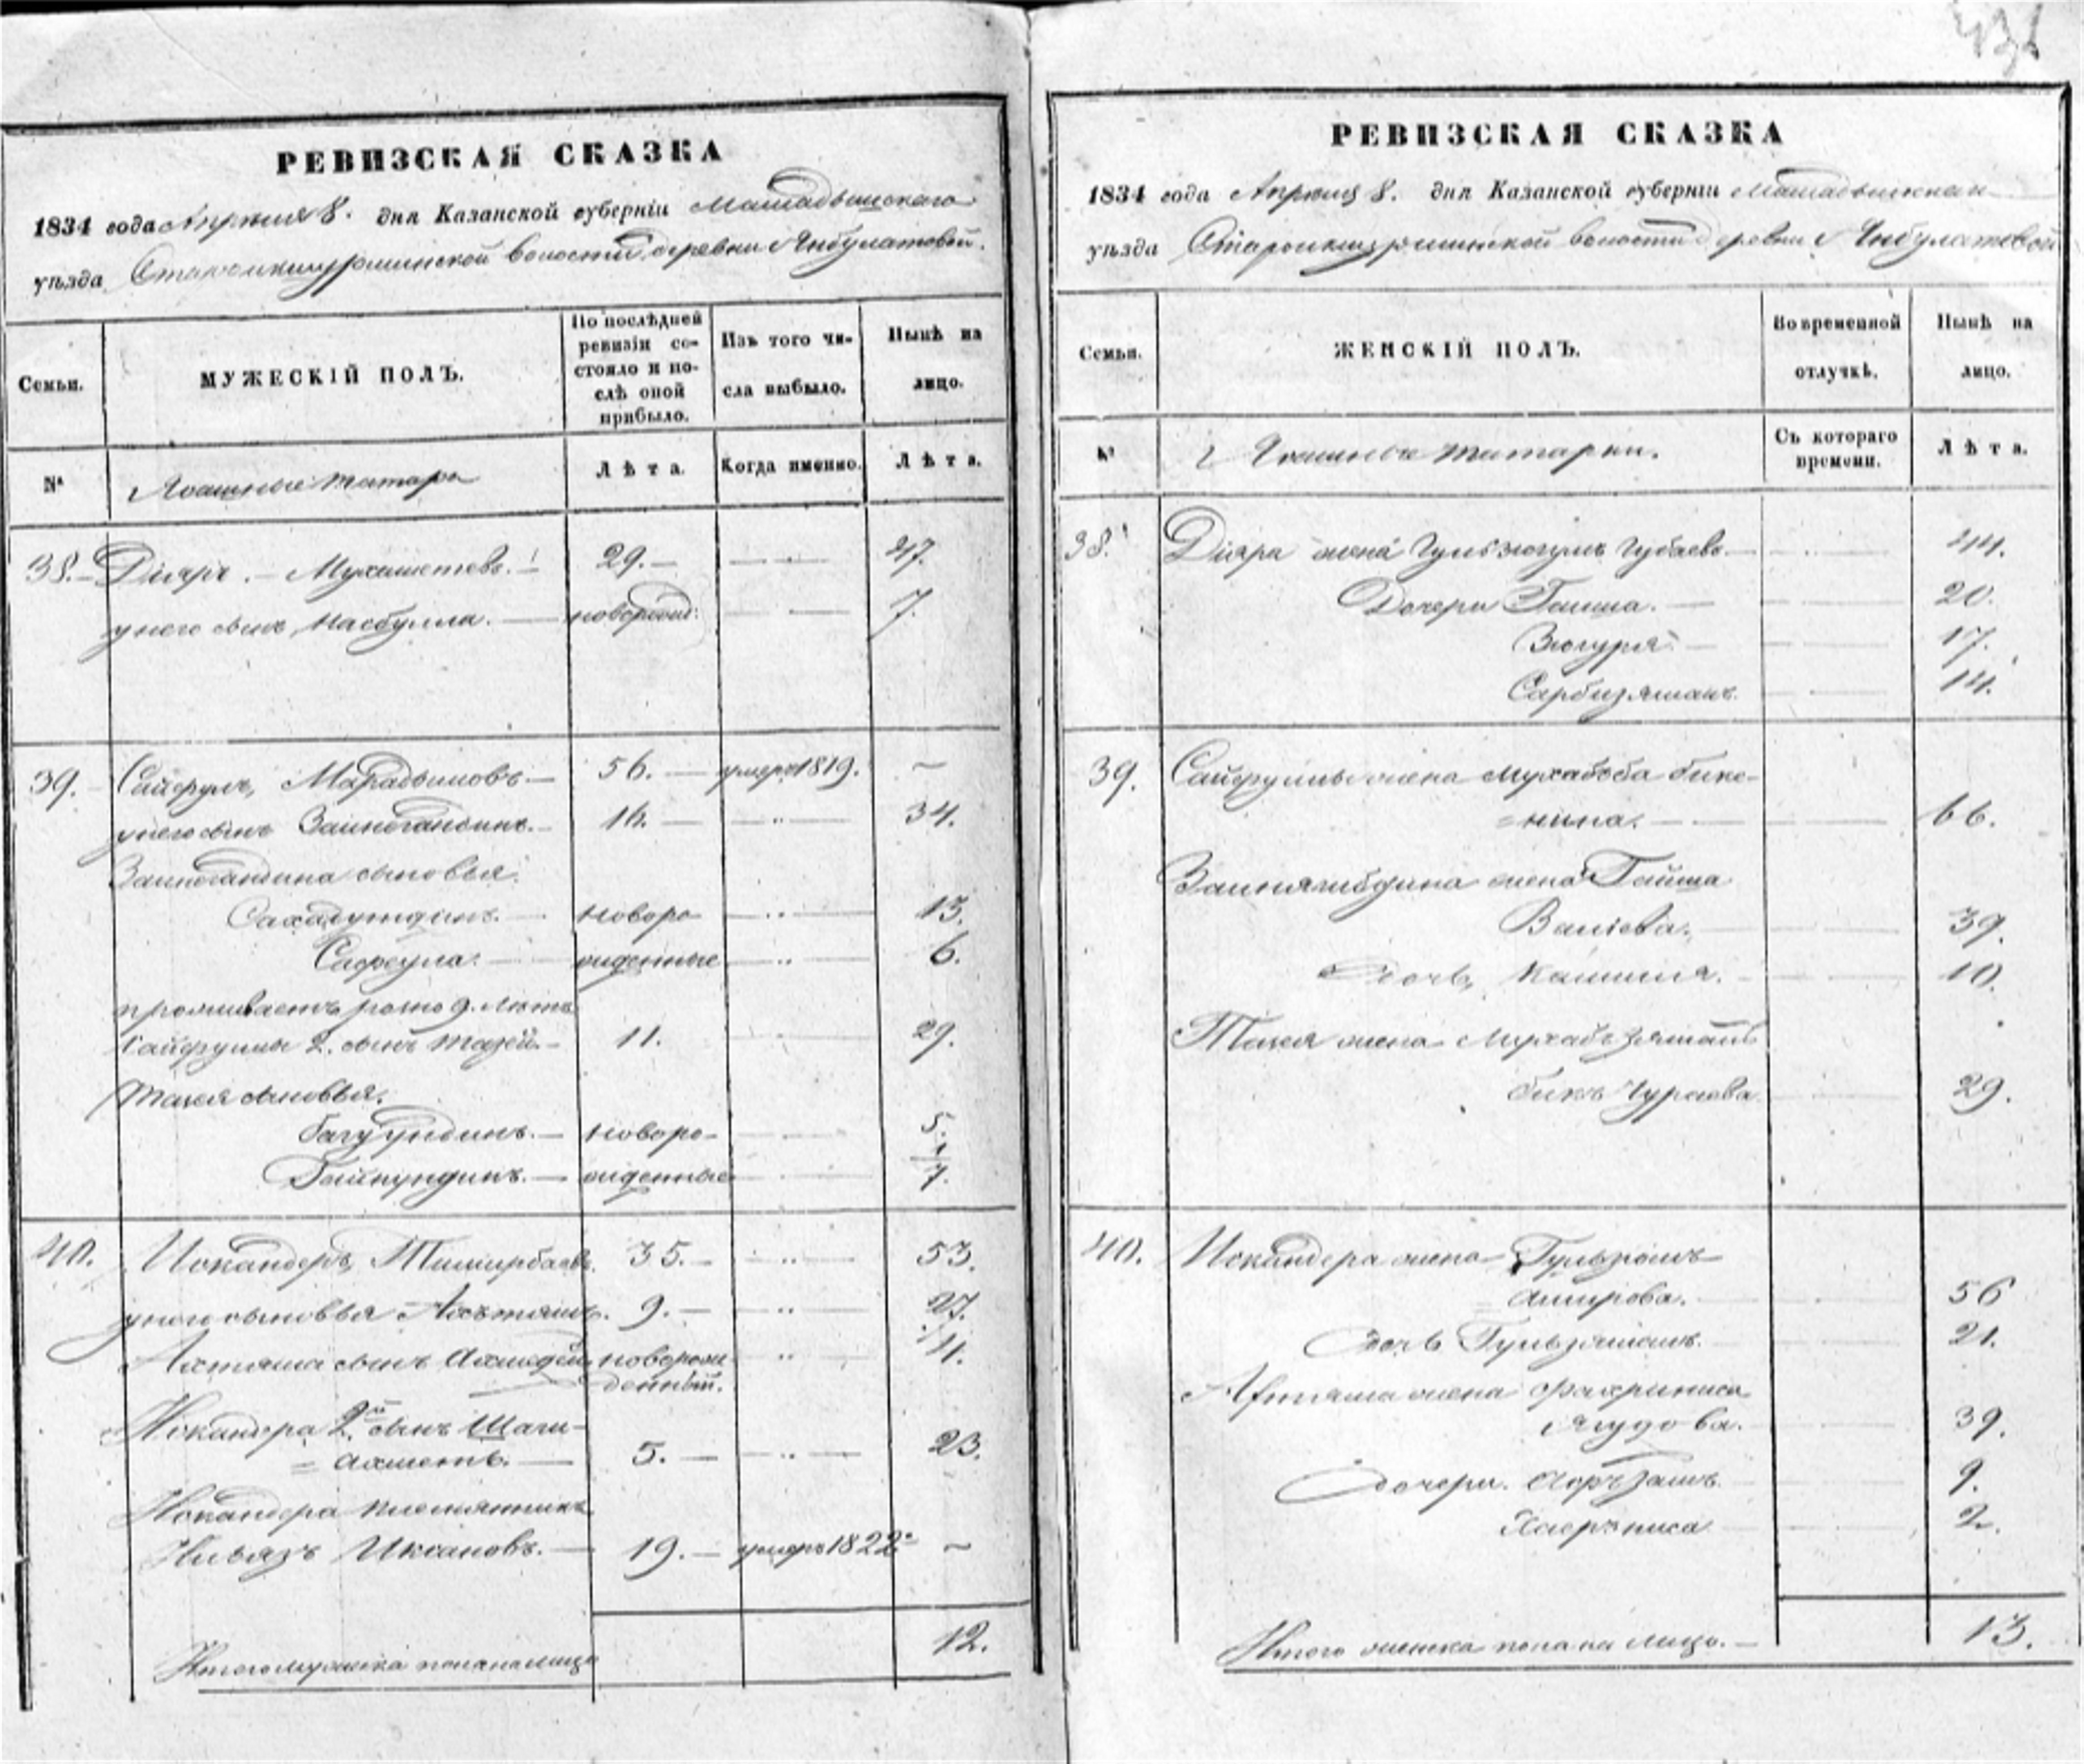 431
РЕВИЗСКАЯ СКАЗКА
1834 года Апреля 8. дня Казанской губерніи Мамадышскаго
уѣзда волости деревни Янбулатовой.
Семьи.
МУЖЕСКІЙ ПОЛЪ.
По послѣдней ревизіи состояло и послѣ оной прибыло.
Изъ того числа выбыло.
Нынѣ на лицо.
№
Ясашные татары
Лѣта.
Когда именно.
Лѣта.
38. Діяръ Мухаметевъ. 29. 47.
у него сынъ, Насбулла. новорожд: 7.
39. Сайфулъ, Марадымовъ 56. умеръ 1819. —
у него сынъ 16. 34.
сыновья:
новоро 13.
Сафеула. жденные 6.
проживаетъ 9. лѣтъ
Сайфуллы 2. сынъ Тазей 11. 29.
сыновья.
новоро- 5.
жденные 7.
40. Искандеръ, Тимирбаевъ. 35. 53.
у него сыновья Ахътямъ. 9. 27.
Ахтяма сынъ новорожденный. 4.
Искандера 2й сынъ Шаги=
=ахметъ. 5. 23.
Искандера племянникъ
Ниязъ Иксановъ. 19. умеръ 1822 —
Итого мужеска пола на лицо 12.
РЕВИЗСКАЯ СКАЗКА
1834 года Апреля 8. дня Казанской губерніи Мамадышскаго
уѣзда волости деревни Янбулатовой
Семьи.
ЖЕНСКІЙ ПОЛЪ.
Во временной отлучкѣ.
Нынѣ на лицо.
№
Ясашные татарки.
Съ котораго времени.
Лѣта.
38. Діяра жена Губаева 44.
Дочери Гаиша. 20.
Зюгуря. 17.
Сарбизямалъ. 14.
39. Сайфуллы жена Мухабъба Бике-
=нина. 66.
жена Гайша
Валіева. 39.
Дочь, Камиля. 10.
Тазея жена
бикъ Чураева 29.
40. Искандера жена
Амирова. 56
дочь Гульзямалъ. 21.
Ахтяма жена Фахриниса
Ягудова. 39.
дочери. 9.
Хаерниса 2.
Итого женска пола на лицо. 13.